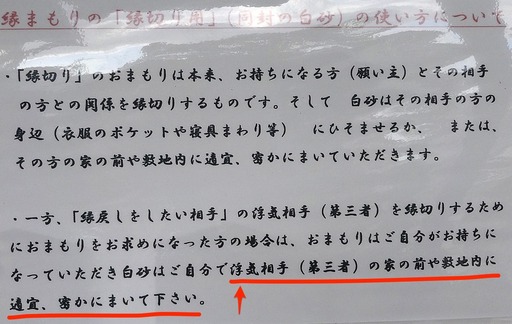 縁まもりの「縁切り用」(同封の白砂)の使い方について
・「縁切り」のおまもりは本来、お持ちになる方(願い主)とその相手
の方との関係を縁切りするものです。そして　白砂はその相手の方の
身辺(衣服のポケットや寝具まわり等)　にひそませるか、　または、
その方の家の前や敷地内に適宜、密かにまいていただきます。
・一方、「縁戻しをしたい相手」の浮気相手(第三者)を縁切りするため
におまもりをお求めになった方の場合は、おまもりはご自分がお持ちに
なっていただき白砂はご自分で浮気相手(第三者)の家の前や敷地内に
適宜、密かにまいて下さい。